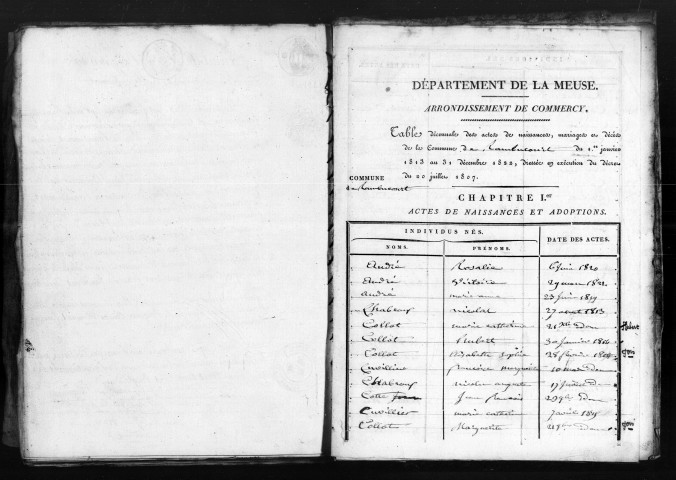 DÉPARTEMENT DE LA MEUSE.
ARRONDISSEMENT DE COMMERCY.
Table décennale des actes de naissances, mariages et décès
de la Commune de Rambucourt du 1.er janvier
1813 au 31 décembre 1822, dressée en exécution du décret
du 20 juillet 1807.
COMMUNE
de Rambucourt
CHAPITRE I.er
ACTES DE NAISSANCES ET ADOPTIONS.
INDIVIDUS NÉS.
DATE DES ACTES.
NOMS.
PRÉNOMS.
André Rosalie 6 juin 1820
André Victoire 29 mars 1822
André marie anne 23 juin 1819
Chabeaux nicolas 27 août 1813
Collot marie catherine 21 Xbre
Collot hubert 30 janvier 1814
Collot sophie 28 février
Cuvillier marguerite 10 mars
Chabeaux nicolas auguste 17 juillet
Collot Jean francois 27 9bre
Cuvillier marie catherine 7 avril
Collot Marguerite